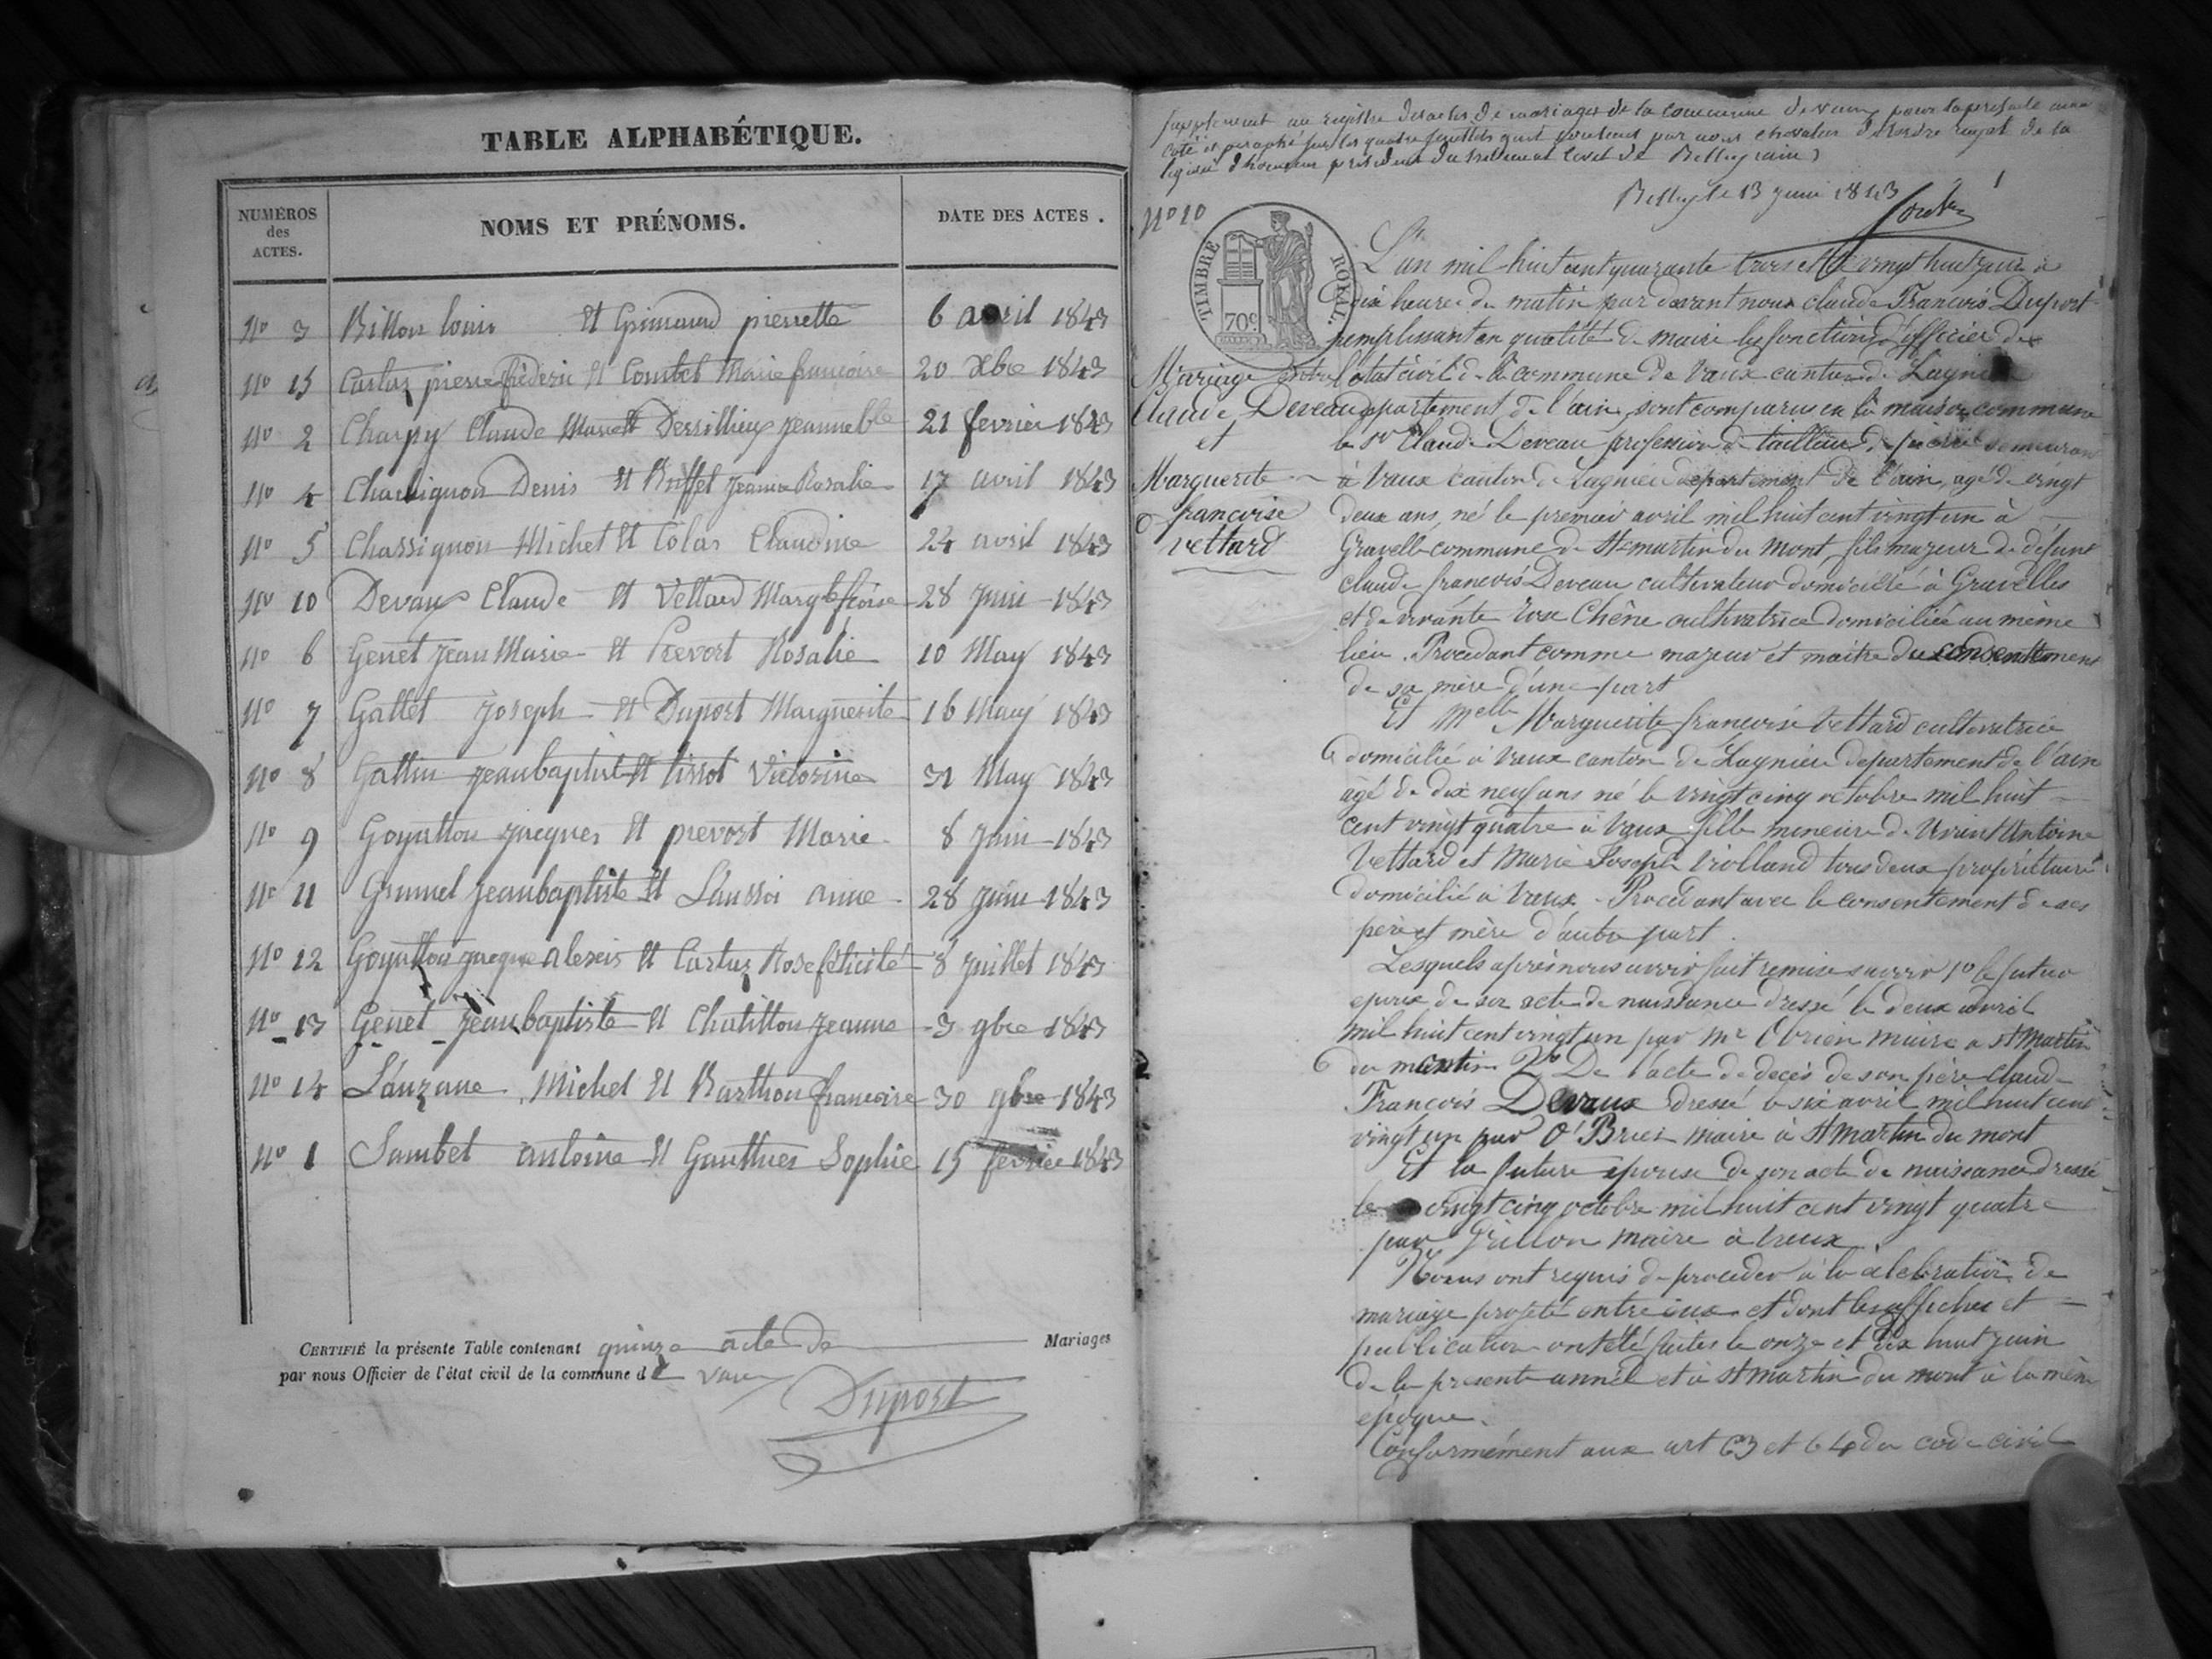 TABLE ALPHABÉTIQUE.
NUMÉROS des ACTES. NOMS ET PRÉNOMS. DATE DES ACTES.
No 3 Billon louis et Grimaud pierrette 6 avril 1843
No 15 Cartaz pierre fréderic et Combet Marie francoise 20 Xbre 1843
No 2 Charpy Claude Marie et Dessillieux Jeanne 21 fevrier 1843
No 4 Chassignon Denis et Buffet Jeanne Rosalie 17 avril 1843
No 5 Chassignon Michel et Colas Claudine 24 avril 1843
No 10 Devaux Claude et Vettard Margte fcoise 28 Juin 1843
No 6 Genet Jean Marie et Prevost Rosalie 10 May 1843
No 7 Gallet Joseph et Duport Marguerite 16 May 1843
No 8 Jean baptiste et tissot Victorine 31 May 1843
No 9 Goyatton Jacques et prevost Marie 8 Juin 1843
No 11 Grumel Jean baptiste et anne 28 Juin 1843
No 12 Goyatton Jacque alexis et Cartaz Rose félicité 8 Juillet 1843
No 13 Genet Jean baptiste et Chatillon Jeanne 3 9bre 1843
No 14 Lauzane Michel et Barthon francoise 30 9bre 1843
No 1 Sambet antoine et Gauthier Sophie 15 fevrier 1843
CERTIFIÉ la présente Table contenant quinze acte de Mariages
par nous Officier de l'état civil de la commune de vaux
Duport
supplement au registre des actes de mariages de la commune de vaux pour la presente année
coté et paraphé sur les quatre feuillets qu'il contient par nous chevalier de l'ordre royal de la
légion d'honneur président du tribunal civil de Belley (ain)
Belley le 13 juin 1843
1
No 10
TIMBRE ROYAL.
70c
L'an mil huit cent quarante trois et le vingt huit juin à
dix heures du matin par devant nous claude François Duport
remplissant en qualité de maire les fonctions d'officier de
l'etat civil de la commune de Vaux canton de Lagnieu
département de l'ain, sont comparus en la maison commune
Mariage entre
Claude Deveau
et
Marguerite
francoise
vettard
le sr Claude Deveau profession de tailleur de pierre demeurant
à Vaux canton de Lagnieu département de l'ain, agé de vingt
deux ans, né le premier avril mil huit cent vingt un à
Gravelle commune de St martin du Mont, fils majeur de défunt
claude francois Deveau cultivateur domicilié à Gravelles
et de vivante Chêne cultivatrice domiciliée au même
lieu. Procédant comme majeur et maitre du consentement
de sa mère d'une part
Et melle Marguerite francoise Vettard cultivatrice
domicilié à Vaux canton de Lagnieu departement de l'ain
agé de dix neuf ans né le vingt cinq octobre mil huit
cent vingt quatre à Vaux fille mineure de vivant Antoine
Vettard et Marie Joseph Violland tous deux propriétaire
domicilié à Vaux. Procédant avec le consentement de ses
père et mère d'autre part.
Lesquels après nous avoir fait remise savoir 1o le futur
epoux de son acte de naissance dressé le deux avril
mil huit cent vingt un par mr Obrien maire a st Martin
du 2o De l'acte de decès de son père claude
François Devaux dressé le six avril mil huit cent
vingt un par O'Brien maire à St Martin du mont
Et la future épouse de son acte de naissance dressé
le vingt cinq octobre mil huit cent vingt quatre
par maire à Vaux.
Nous ont requis de procéder à la célébration de
mariage projeté entre eux et dont les affiches et
publication ont été faites le onze et dix huit juin
de la presente année et à st Martin du mont à la même
époque.
Conformément aux art 63 et 64 du code civil